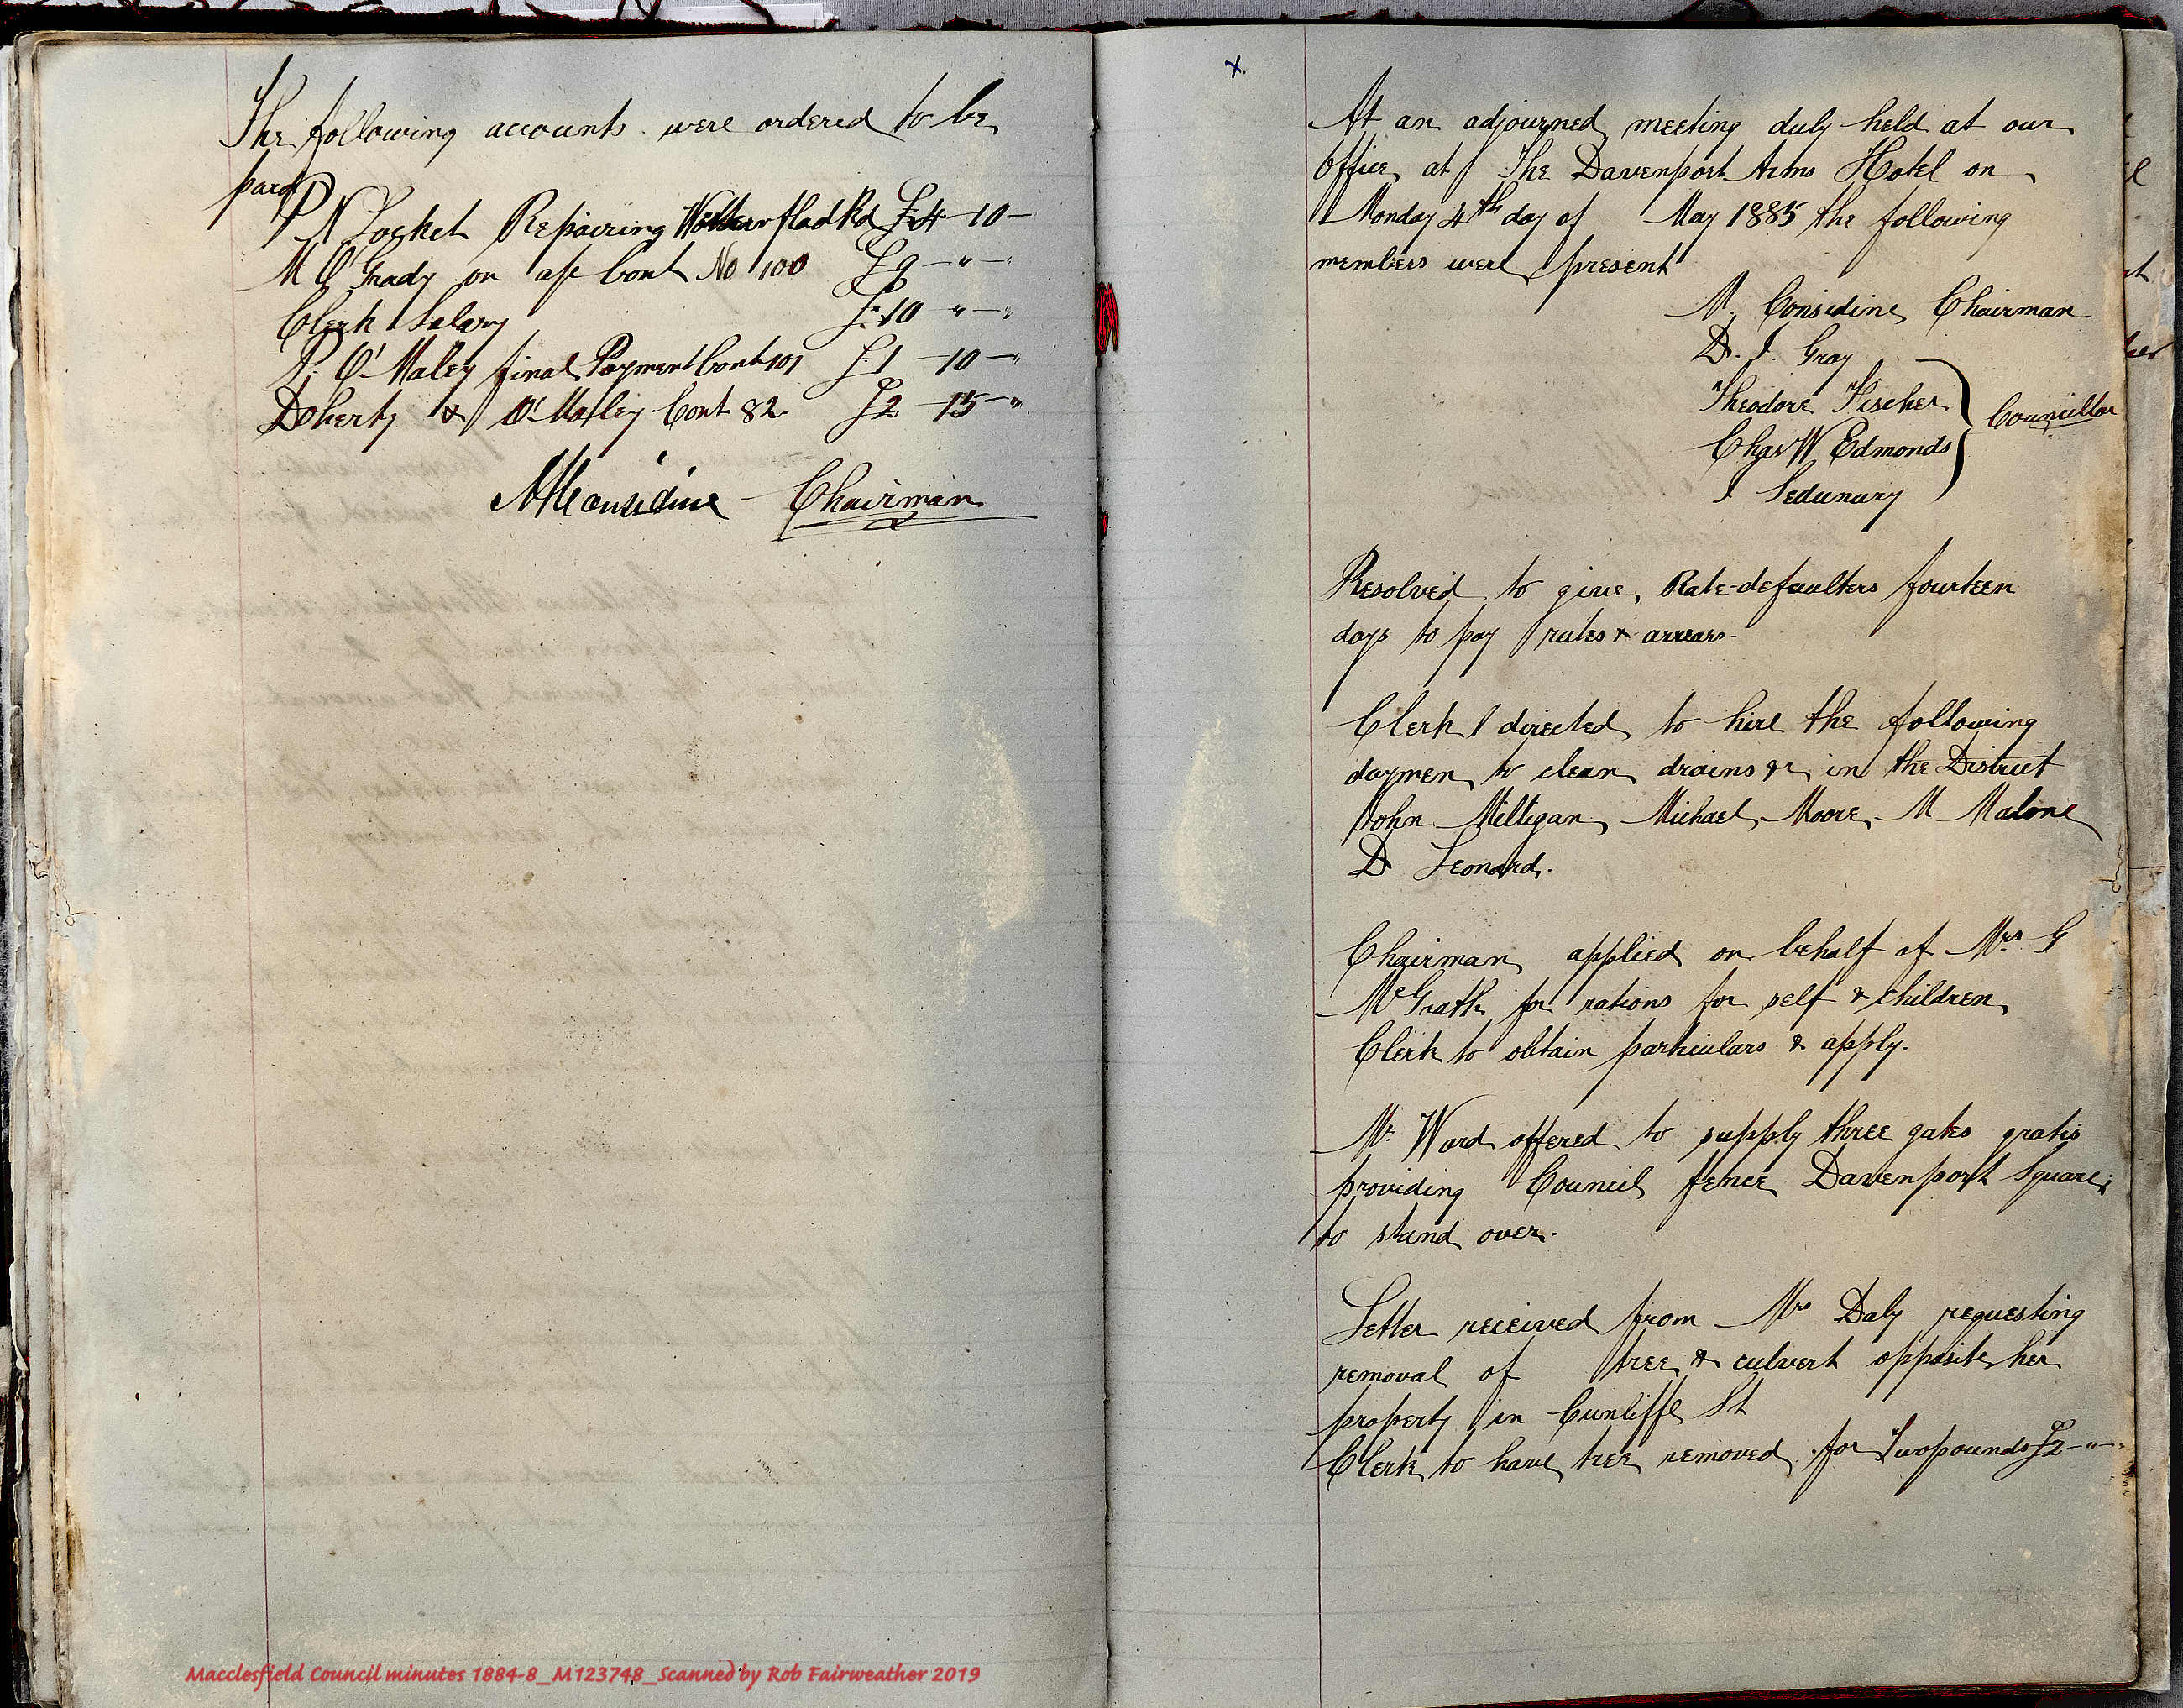 The following accounts were ordered to be
paid
P N Locket Repairing flad Rd £4-10-
M O'Grady on a/c Cont No 100 £9-"-"
Clerk Salary £10 "-"
P. O'Maley final Payment Cont 101 £1-10-"
Doherty & O'Malley Cont 82 £2-15-"
Considine - Chairman
x
At an adjourned meeting duly held at our
Office at The Davenport Arms Hotel on
Monday 4th day of May 1885 the following
members were present
M. Considine Chairman
D. J. Gray
Theodore Fischer
Councillor
Chas W Edmonds
J Sedunary
Resolved to give Rate-defaulters fourteen
days to pay rates & arrears-
Clerk directed to hire the following
daymen to clean drains &c in the District
John Milligan, Michael Moore, M Malone
D Leonard.
Chairman applied on behalf of Mrs G
McGrath for rations for self & children,
Clerk to obtain particulars & apply.
Mr. Ward offered to supply three gates gratis
providing Council fence Davenport Square;
to stand over.
Letter received from Mrs Daly requesting
removal of tree & culvert opposite her
property in Cunliffe St
Clerk to have tree removed for Two pounds £2-"-"
Macclesfield Council minutes 1884-8_M123748_Scanned by Rob Fairweather 2019